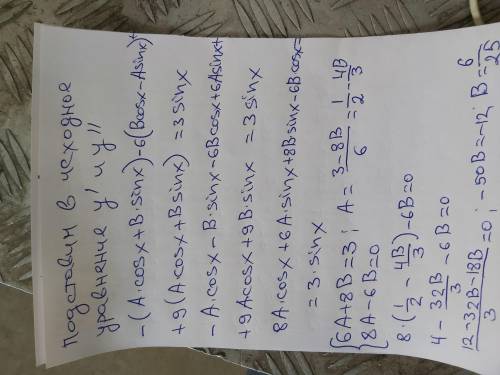 Подставим в исходное
уравнение y' и y''
-(A·cosx+B·sinx)-6(Bcosx-Asinx)+
+9(Acosx+Bsinx)=3sinx
-A·cosx-B·sinx-6Bcosx+6Asinx+
+9Acosx+9B·sinx=3sinx
8A·cosx+6A·sinx+8Bsinx-6Bcosx=
=3·sinx
{6A+8B=3; A=(3-8B)/6=1/2-4B/3
{8A-6B=0
8·(1/2-4B/3)-6B=0
4-32B/3-6B=0
(12-32B-18B)/3=0; -50B=-12; B=6/25